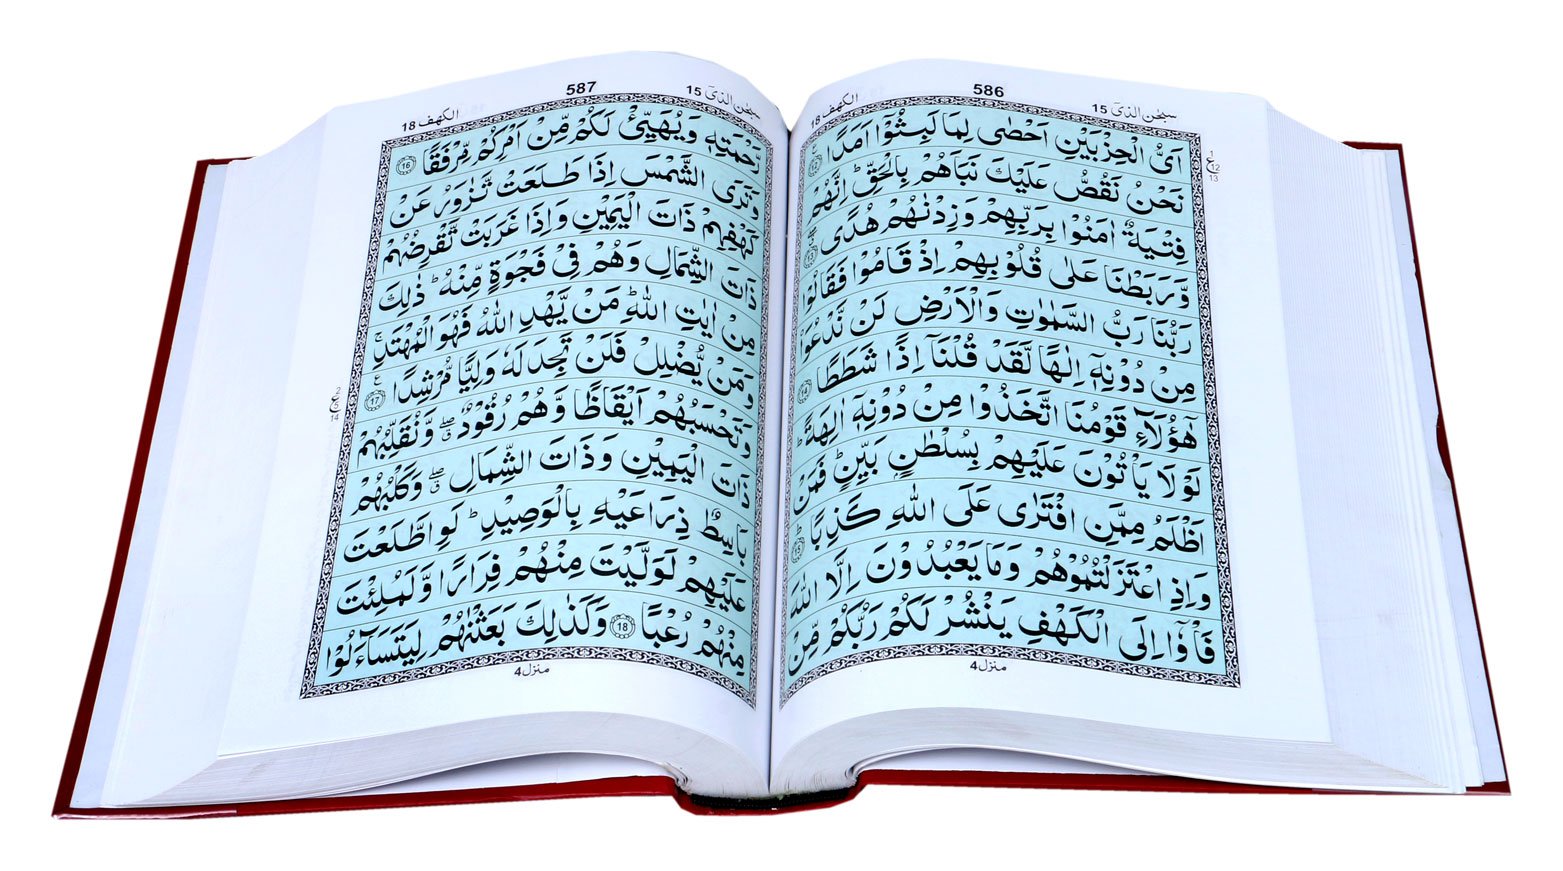 سبحٰن الذیٓ 15
586
الكهف 18
اَیُّ الْحِزْبَیْنِ اَحْصٰی لِمَا لَبِثُوْۤا اَمَدًا ﴿12﴾
نَحْنُ نَقُصُّ عَلَیْكَ نَبَاَهُمْ بِالْحَقِّ ؕ اِنَّهُمْ
فِتْیَةٌ اٰمَنُوْا بِرَبِّهِمْ وَزِدْنٰهُمْ هُدًی ﴿13﴾
وَّرَبَطْنَا عَلٰی قُلُوْبِهِمْ اِذْ قَامُوْا فَقَالُوْا
رَبُّنَا رَبُّ السَّمٰوٰتِ وَالْاَرْضِ لَنْ نَّدْعُوَا۠
مِنْ دُوْنِهٖۤ اِلٰهًا لَّقَدْ قُلْنَاۤ اِذًا شَطَطًا ﴿14﴾
هٰۤؤُلَآءِ قَوْمُنَا اتَّخَذُوْا مِنْ دُوْنِهٖۤ اٰلِهَةً ؕ
لَوْلَا یَاْتُوْنَ عَلَیْهِمْ بِسُلْطٰنٍۭ بَیِّنٍ ؕ فَمَنْ
اَظْلَمُ مِمَّنِ افْتَرٰی عَلَی اللّٰهِ كَذِبًا ﴿15﴾
وَاِذِ اعْتَزَلْتُمُوْهُمْ وَمَا یَعْبُدُوْنَ اِلَّا اللّٰهَ
فَاْوٗۤا اِلَی الْكَهْفِ یَنْشُرْ لَكُمْ رَبُّكُمْ مِّنْ
منزل 4
ع
12
13
سبحٰن الذیٓ 15
587
الكهف 18
رَّحْمَتِهٖ وَیُهَیِّئْ لَكُمْ مِّنْ اَمْرِكُمْ مِّرْفَقًا ﴿16﴾
وَتَرَی الشَّمْسَ اِذَا طَلَعَتْ تَّزٰوَرُ عَنْ
كَهْفِهِمْ ذَاتَ الْیَمِیْنِ وَاِذَا غَرَبَتْ تَّقْرِضُهُمْ
ذَاتَ الشِّمَالِ وَهُمْ فِیْ فَجْوَةٍ مِّنْهُ ؕ ذٰلِكَ
مِنْ اٰیٰتِ اللّٰهِ ؕ مَنْ یَّهْدِ اللّٰهُ فَهُوَ الْمُهْتَدِ ۚ
وَمَنْ یُّضْلِلْ فَلَنْ تَجِدَ لَهٗ وَلِیًّا مُّرْشِدًا ﴿17﴾
وَتَحْسَبُهُمْ اَیْقَاظًا وَّهُمْ رُقُوْدٌ ۖۗ وَّنُقَلِّبُهُمْ
ذَاتَ الْیَمِیْنِ وَذَاتَ الشِّمَالِ ۖۗ وَكَلْبُهُمْ
بَاسِطٌ ذِرَاعَیْهِ بِالْوَصِیْدِ ؕ لَوِ اطَّلَعْتَ
عَلَیْهِمْ لَوَلَّیْتَ مِنْهُمْ فِرَارًا وَّلَمُلِئْتَ
مِنْهُمْ رُعْبًا ﴿18﴾ وَكَذٰلِكَ بَعَثْنٰهُمْ لِیَتَسَآءَلُوْا
منزل 4
ع
14